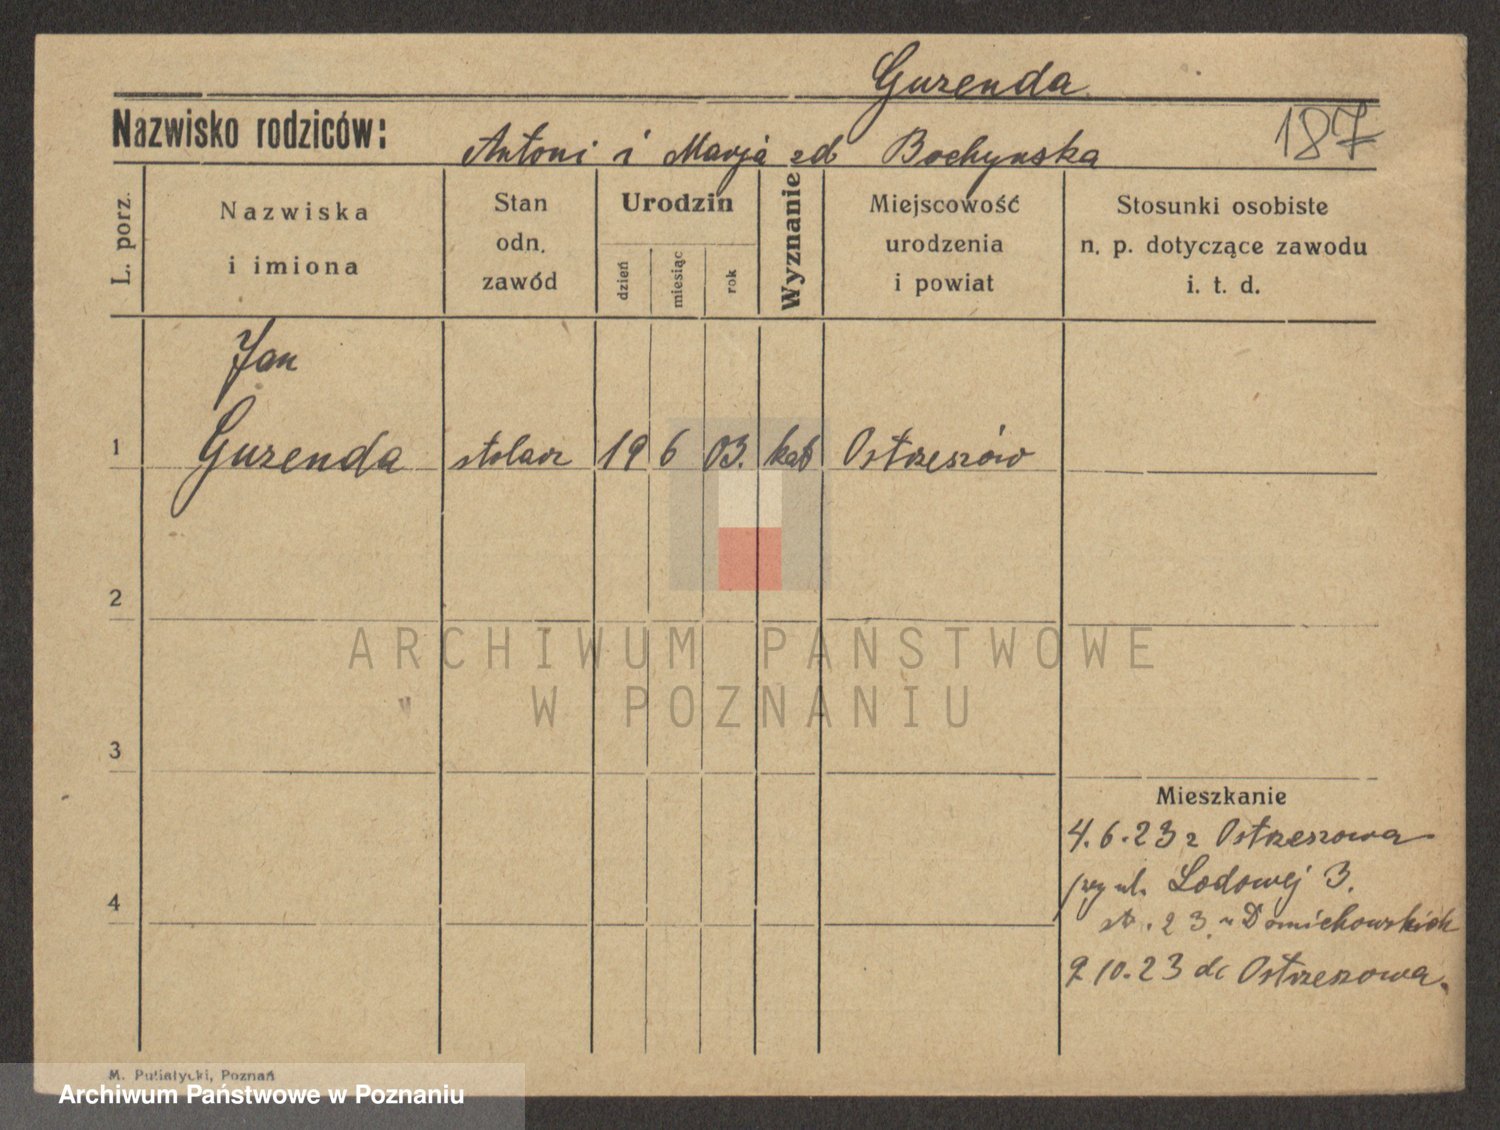 Gurenda
187
Nazwisko rodziców: Antoni i Marja zd Bochynska
L. porz.
Nazwiska
i imiona
Stan
odn.
zawód
Urodzin
dzień
miesiąc
rok
Wyznanie
Miejscowość
urodzenia
i powiat
Stosunki osobiste
n. p. dotyczące zawodu
i. t. d.
Jan
1 Gurenda stolarz 19 6 03. kat Ostrzeszów
2
ARCHIWUM PAŃSTWOWE
W POZNANIU
3
Mieszkanie
4.6.23 z Ostrzeszowa
przy ul. Lodowej 3.
4
23. u Domichowskich
10.23 do Ostrzeszowa.
M. Putiatycki, Poznań
Archiwum Państwowe w Poznaniu